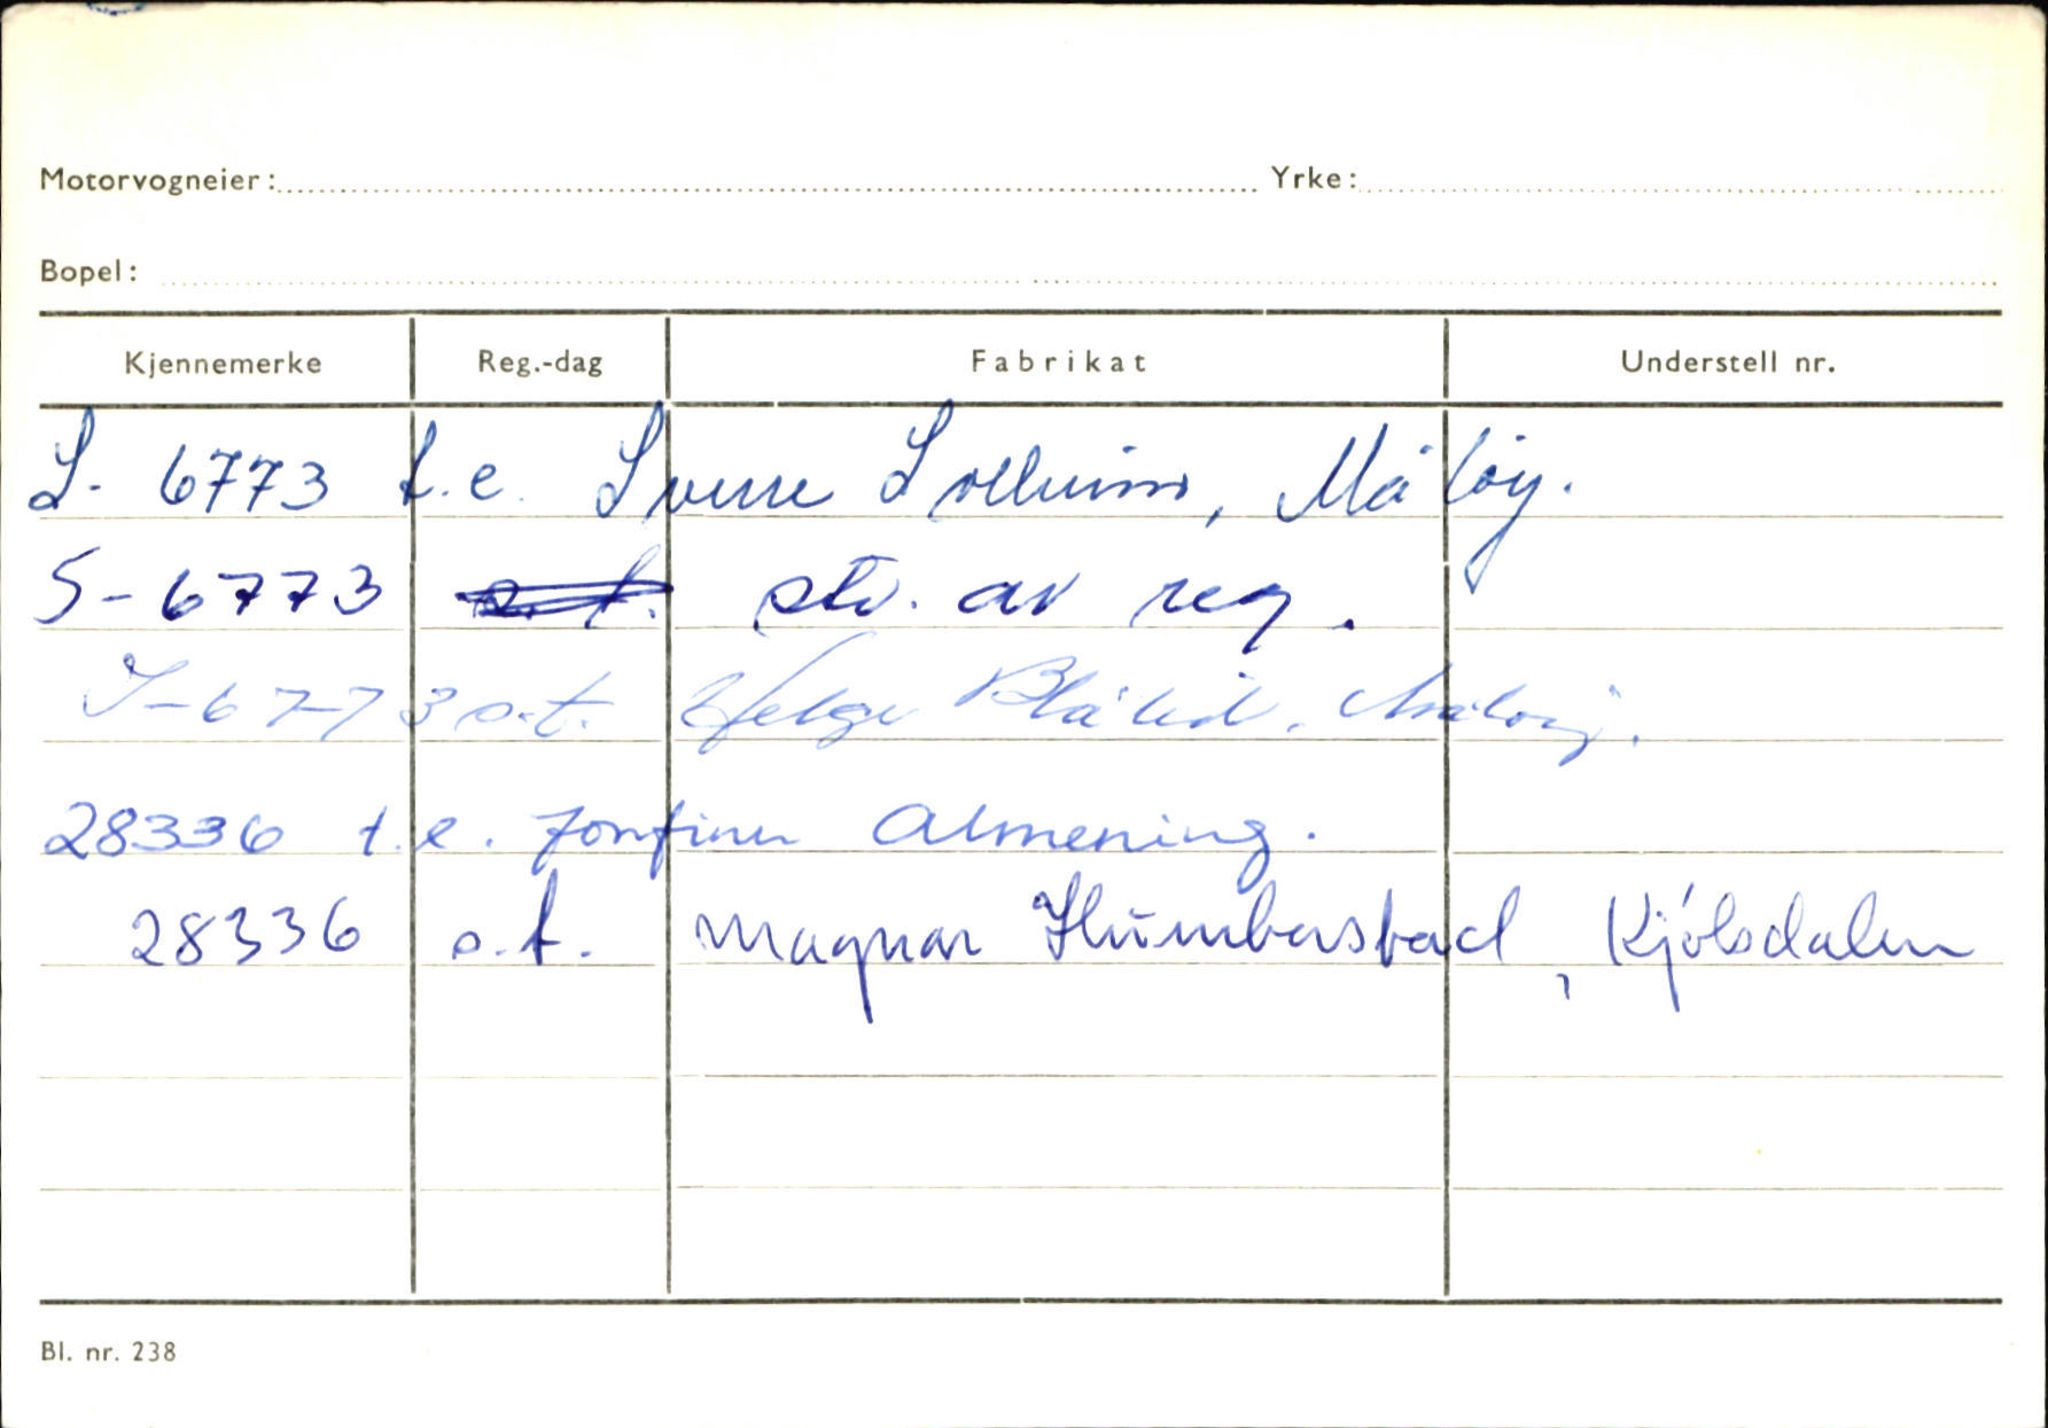 Motorvogneier: Yrke:
Bopel:
Kjennemerke Reg.-dag Fabrikat Understell nr.
S- 6773 t.e. Sverre Solheim, Måløy.
S-6773 o.t. str. av reg.
S-6773 o.t. Helge Blålid, Måløy.
28336 t.e. Jonfinn Almening.
28336 o.t. Magnar Humborstad, Kjølsdalen
Bl. nr. 238